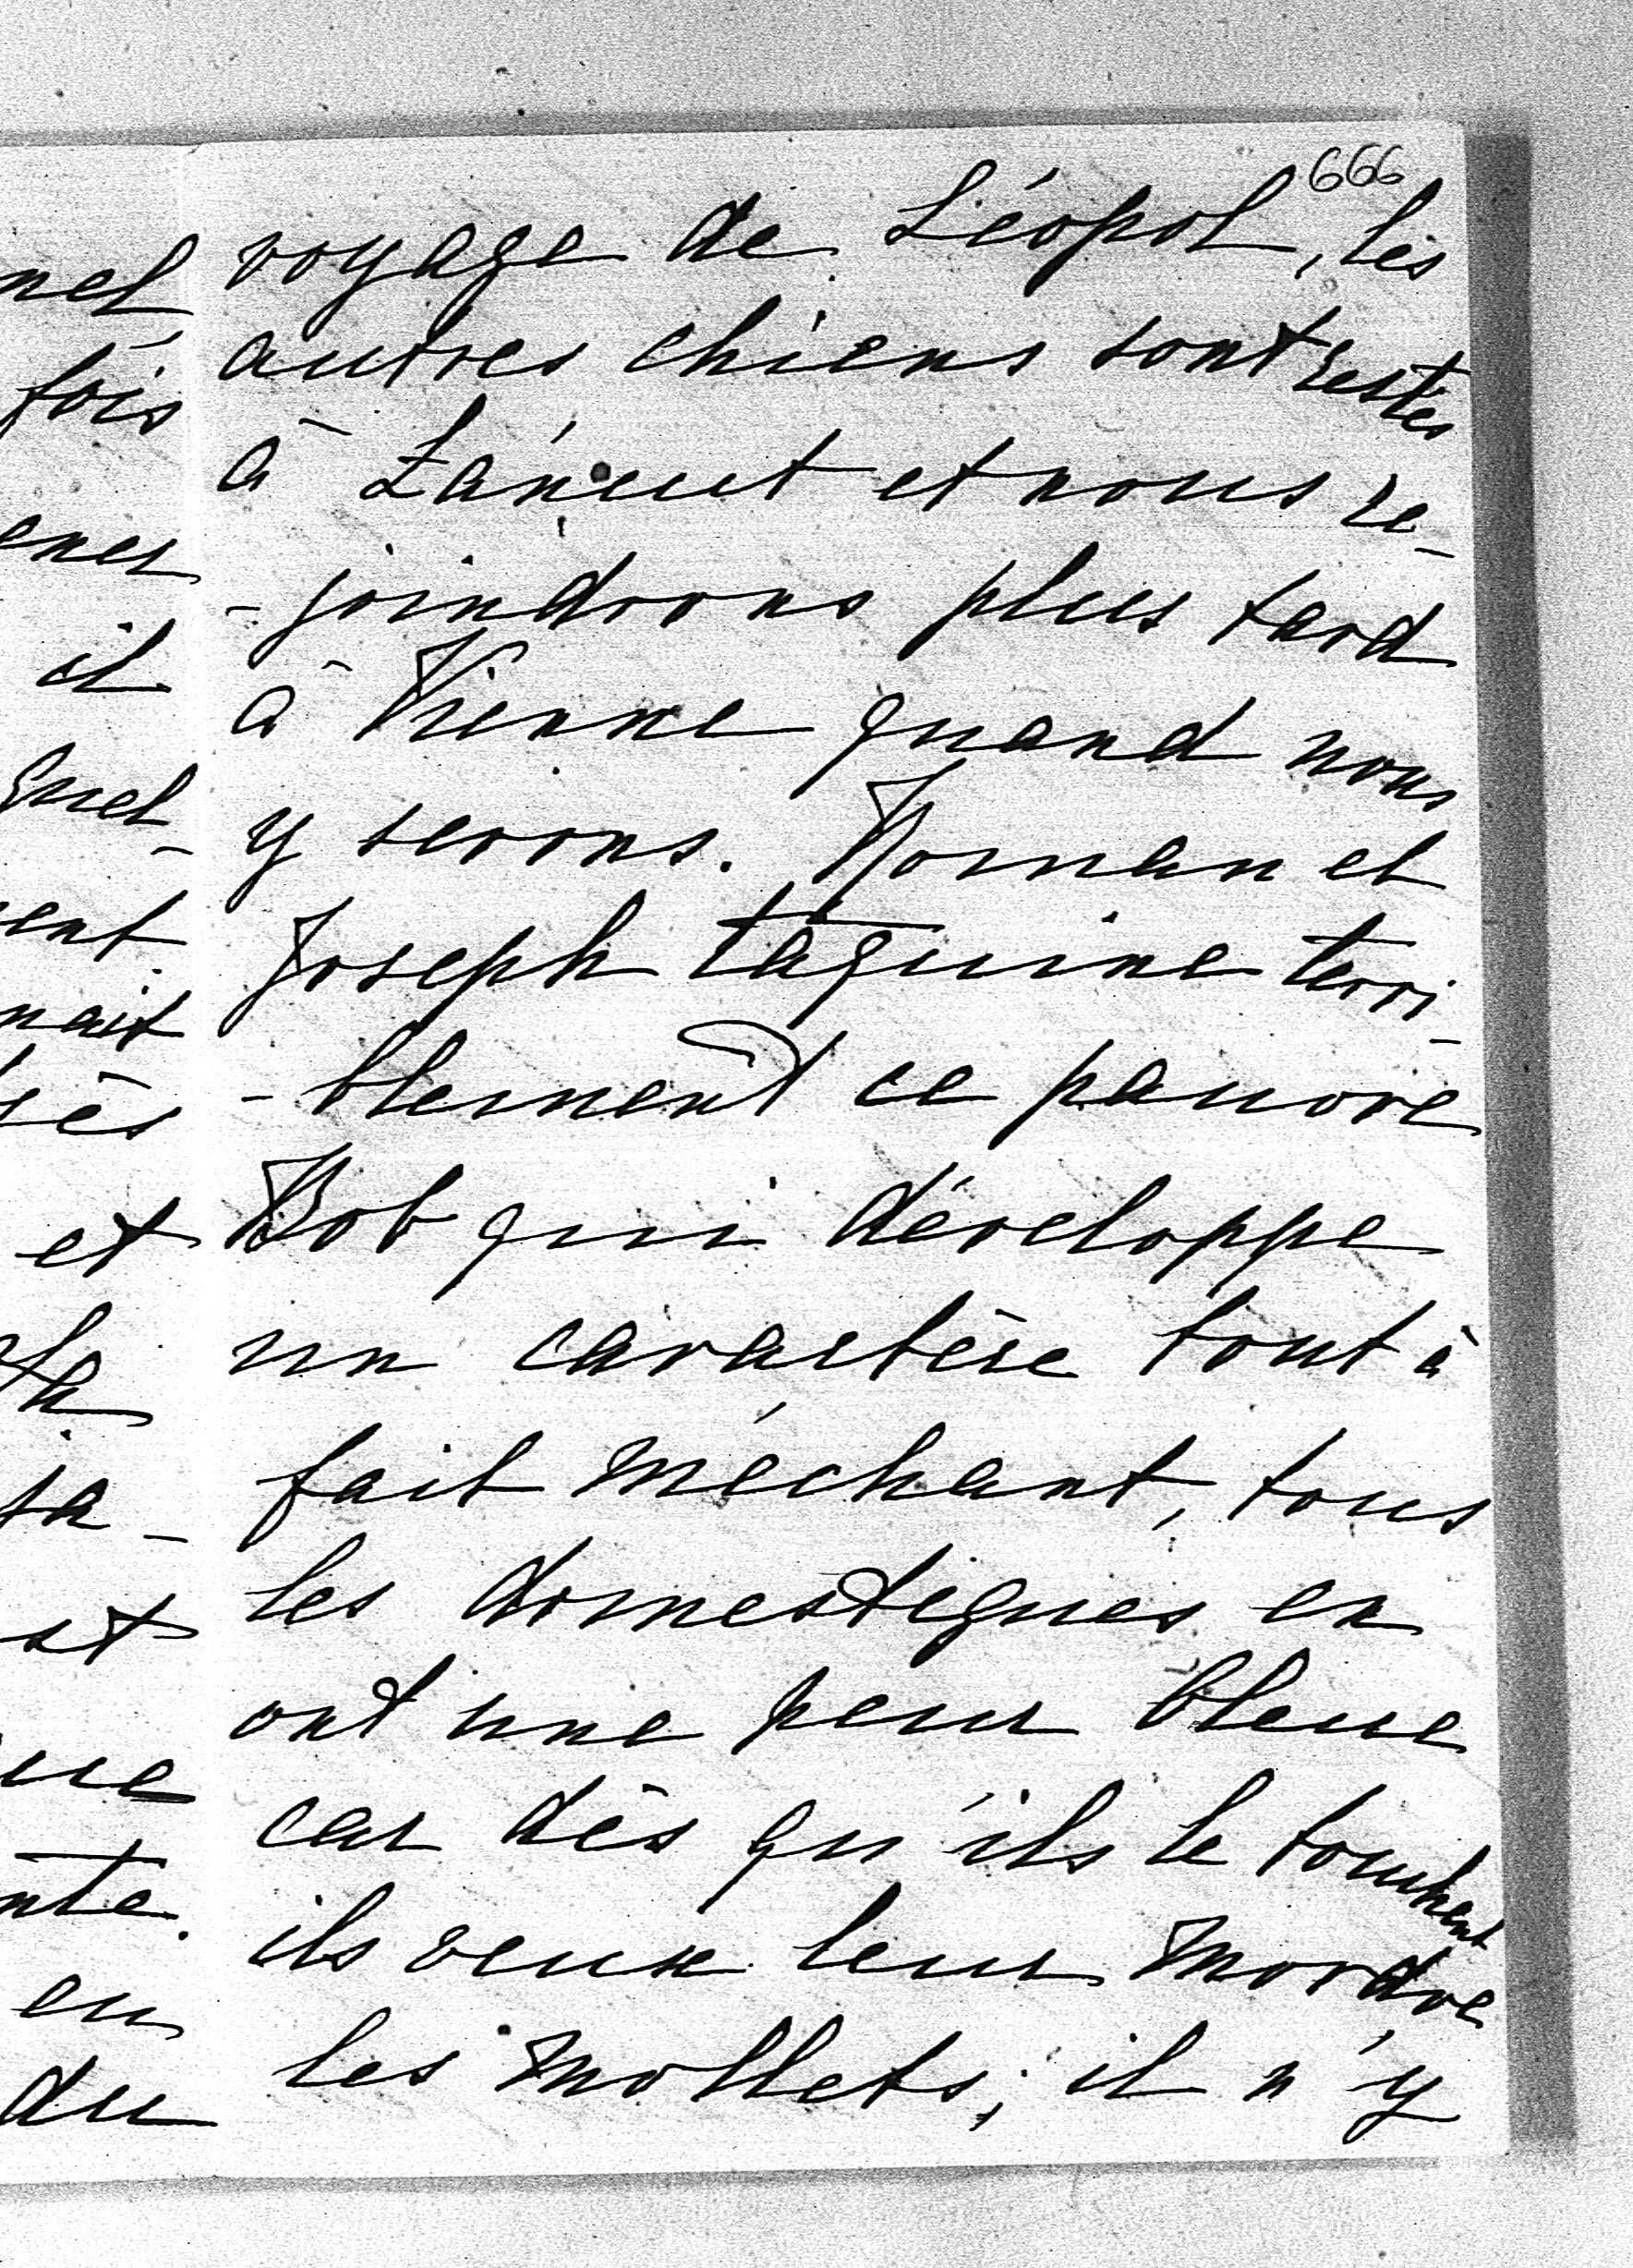 666
voyage de Léopol, les
autres chiens sont restés
à Łańcut et nous re-
-joindrons plus tard
à Vienne quand nous
y serons. Roman et
Joseph taquine terri-
-blement ce pauvre
Bob qui développe
un caractère tout à
fait méchant, tous
les domestiques en
ont une peur bleue
car dès qu'ils le touchent
ils veux leur mordre
les mollets; il n'y
nel
fois
il
quel-
ent
nait
et
la
sa-
st
ue
nte.
en
du